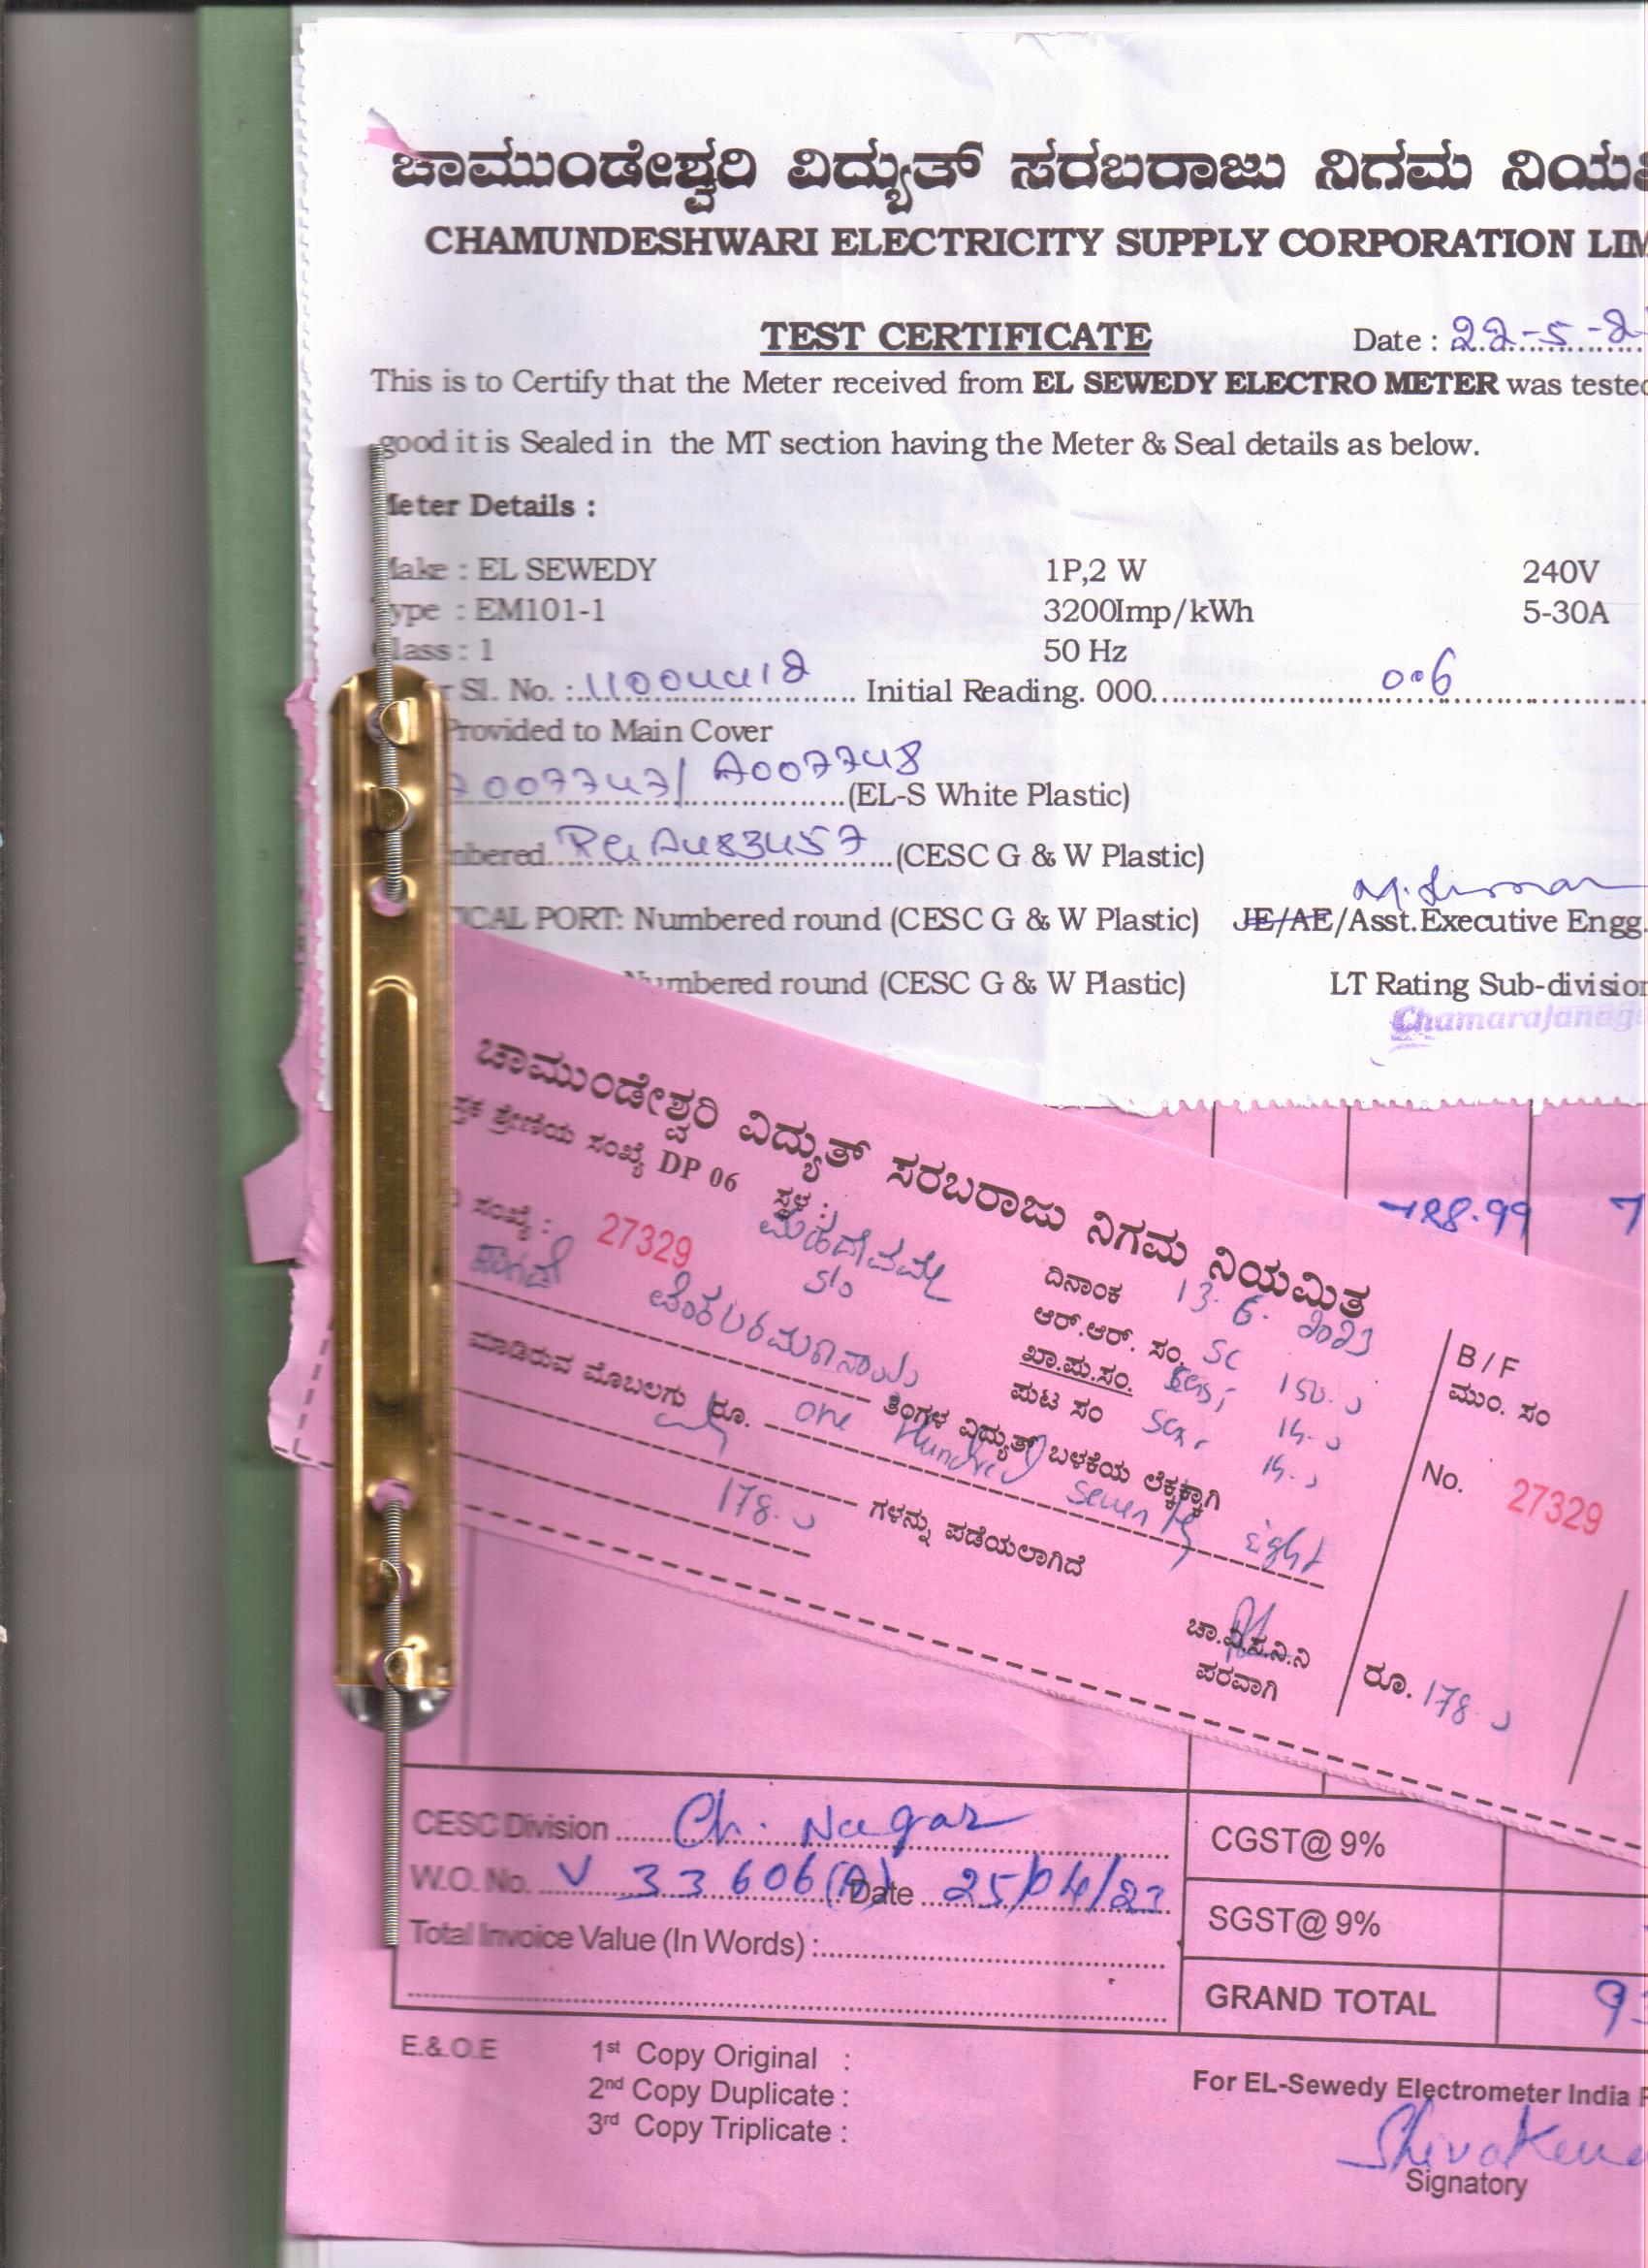 ಚಾಮುಂಡೇಶ್ವರಿ ವಿದ್ಯುತ್ ಸರಬರಾಜು ನಿಗಮ
CHAMUNDESHWARI ELECTRICITY SUPPLY CORPORATION
TEST CERTIFICATE Date : 22-5-2
This is to Certify that the Meter received from EL SEWEDY ELECTRO METER was tested
good it is Sealed in the MT section having the Meter & Seal details as below.
Meter Details :
Make : EL SEWEDY 1P,2 W 240V
Type : EM101-1 3200Imp/kWh 5-30A
Class : 1 50 Hz
Sl. No. : 11004418 Initial Reading. 000 006
Provided to Main Cover
A007747/ A007748 (EL-S White Plastic)
(CESC G & W Plastic)
PORT: Numbered round (CESC G & W Plastic) JE/AE/Asst.Executive Engg.
Numbered round (CESC G & W Plastic) LT Rating Sub-division
ಚಾಮುಂಡೇಶ್ವರಿ ವಿದ್ಯುತ್ ಸರಬರಾಜು ನಿಗಮ ನಿಯಮಿತ
ಶ್ರೇಣಿಯ ಸಂಖ್ಯೆ DP 06 ಸ್ಥಳ :
ಸಂಖ್ಯೆ : 27329
ದಿನಾಂಕ 13.6.2023
ಆರ್.ಆರ್. ಸಂ. SC 150.
ಖಾ.ಪು.ಸಂ. 14.
ಪುಟ ಸಂ 14.
ತಿಂಗಳ ವಿದ್ಯುತ್ ಬಳಕೆಯ ಲೆಕ್ಕಕ್ಕಾಗಿ
ಮಾಡಿರುವ ಮೊಬಲಗು ರೂ. One Hundred Seventy Eight
178. ಗಳನ್ನು ಪಡೆಯಲಾಗಿದೆ
ಚಾ.ವಿ.ಸ.ನಿ.ನಿ
ಪರವಾಗಿ
B / F
ಮುಂ. ಸಂ
No. 27329
ರೂ. 178.
CESC Division Ch. Nagar
W.O. No. V 33606(A) Date 25/04/23
Total Invoice Value (In Words) :
CGST@ 9%
SGST@ 9%
GRAND TOTAL
E.& O.E
1st Copy Original :
2nd Copy Duplicate :
3rd Copy Triplicate :
For EL-Sewedy Electrometer India
Signatory